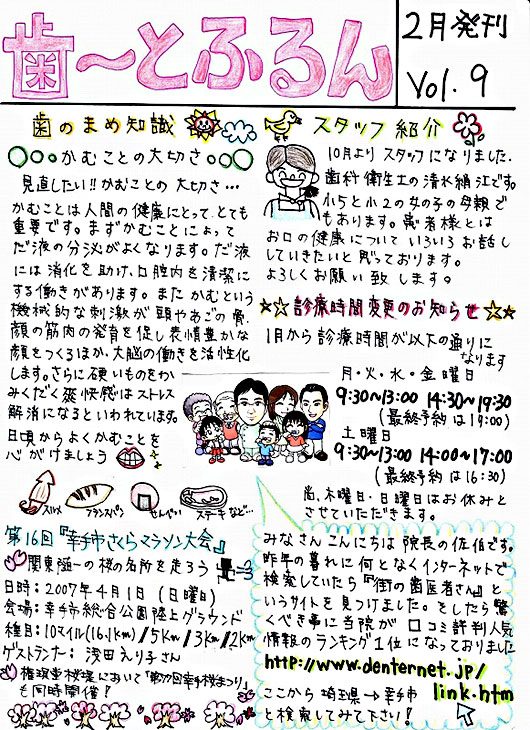 歯〜とふるん
2月発刊
Vol.9
歯のまめ知識
○○○かむことの大切さ○○○
見直したい!!かむことの大切さ…
かむことは人間の健康にとって、とても
重要です。まずかむことによって
だ液の分泌がよくなります。だ液
には消化を助け、口腔内を清潔に
する働きがあります。またかむという
機械的な刺激が頭やあごの骨、
顔の筋肉の発育を促し表情豊かな
顔をつくるほか、大脳の働きを活性化
します。さらに硬いものをか
みくだく爽快感はストレス
解消になるといわれています。
日頃からよくかむことを
心がけましょう
スルメ
フランスパン
せんべい
ステーキなど…
スタッフ紹介
10月よりスタッフになりました、
歯科衛生士の清水絹江です。
小5と小2の女の子の母親で
もあります。患者様とは
お口の健康についていろいろお話し
していきたいと思っております。
よろしくお願い致します。
☆☆診療時間変更のお知らせ☆☆
1月から診療時間が以下の通りに
なります
月・火・水・金曜日
9:30~13:00 14:30~19:30
(最終予約は19:00)
土曜日
9:30~13:00 14:00~17:00
(最終予約は16:30)
尚、木曜日・日曜日はお休みと
させていただきます。
第16回『幸手市さくらマラソン大会』
関東随一の桜の名所を走ろう
日時:2007年4月1日(日曜日)
会場:幸手市総合公園陸上グラウンド
種目:10マイル(16.1km)/5km/3km/2km
ゲストランナー:浅田えり子さん
権現堂桜堤において「第77回幸手桜まつり」
も同時開催!
みなさんこんにちは院長の佐伯です。
昨年の暮れに何となくインターネットで
検索していたら『街の歯医者さん』と
いうサイトを見つけました。そしたら驚
くべき事に当院が口コミ評判人気
情報のランキング1位になっておりました
http://www.denternet.jp/
link.htm
ここから埼玉県→幸手市
と検索してみて下さい!